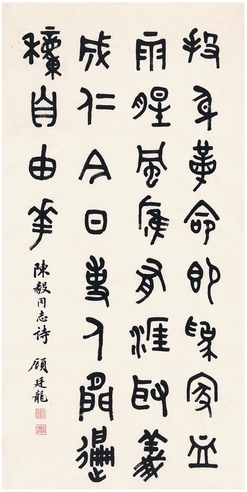 投身革命即為家血
雨腥風應有涯取義
成仁今日事人間遍
種自由華
陳毅同志詩 顧廷龍